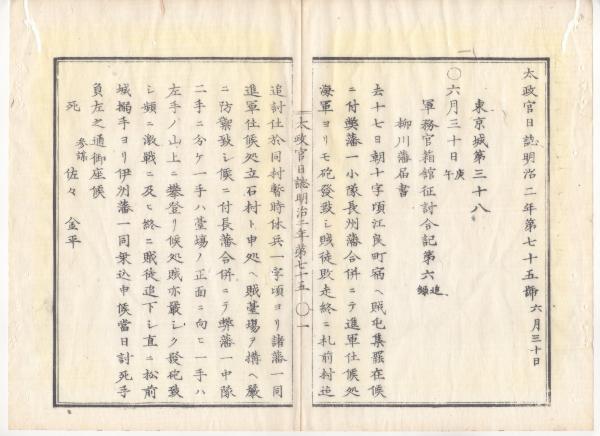 太政官日誌明治二年第七十五號 六月三十日
東京城第三十八
○六月三十日庚午
軍務官箱館征討合記第六追録
柳川藩届書
去十七日朝十字頃江良町宿ヘ賊屯集罷在候
ニ付弊藩一小隊長州藩合併ニテ進軍仕候処
海軍ヨリモ砲發致シ賊徒敗走終ニ札前村迄
太政官日誌明治二年第七十五 ○一
追討仕於同村暫時休兵一字頃ヨリ諸藩一同
進軍仕候処立石村ト申処ヘ賊臺場ヲ構ヘ嚴
ニ防禦致シ候ニ付長藩合併ニテ弊藩一中隊
二手ニ分ケ一手ハ臺場ノ正面ニ向ヒ一手ハ
左手ノ山上ニ攀登リ候処賊亦嚴シク發砲致
シ頻ニ激戰ニ及ヒ終ニ賊徒追下シ直ニ松前
城搦手ヨリ伊州藩一同乗込申候當日討死手
負左之通御座候
死 参謀 佐々 金平